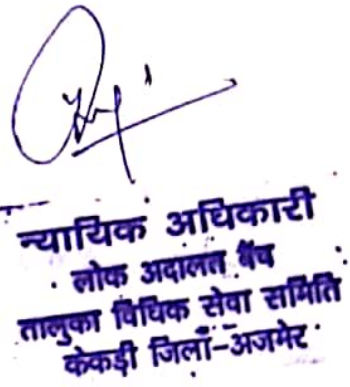 न्यायिक अधिकारी
लोक अदालत बैंच
तालुका विधिक सेवा समिति
केकड़ी जिलाँ-अजमेर